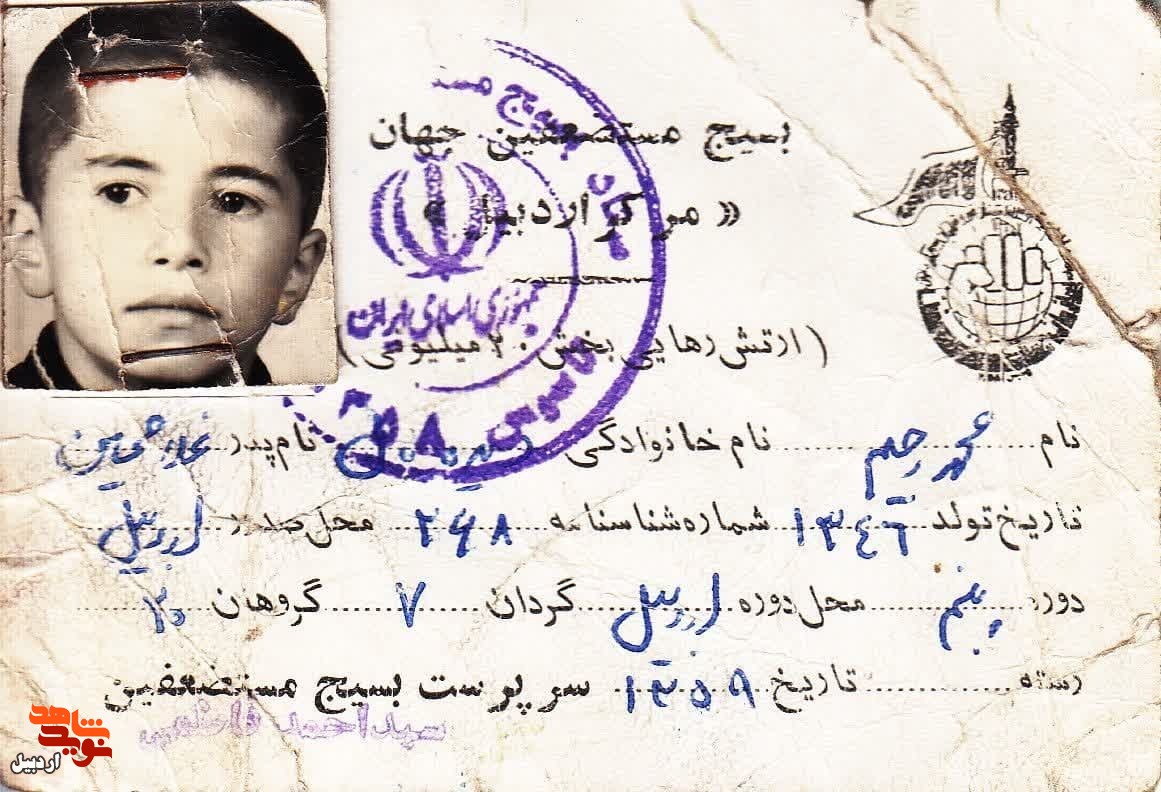 بسیج مستضعفین جهان
« مرکز اردبیل »
( ارتش رهایی بخش ۲۰ میلیونی )
جمهوری اسلامی ایران
نام محمد رحیم نام خانوادگی نام پدر
تاریخ تولد ۱۳۴۶ شماره شناسنامه ۲۶۸ محل صدور اردبیل
دوره پنجم محل دوره اردبیل گردان ۷ گروهان ۳
رسته تاریخ ۱۳۵۹ سرپرست بسیج مستضعفین
سید احمد
نوید شاهد
اردبیل